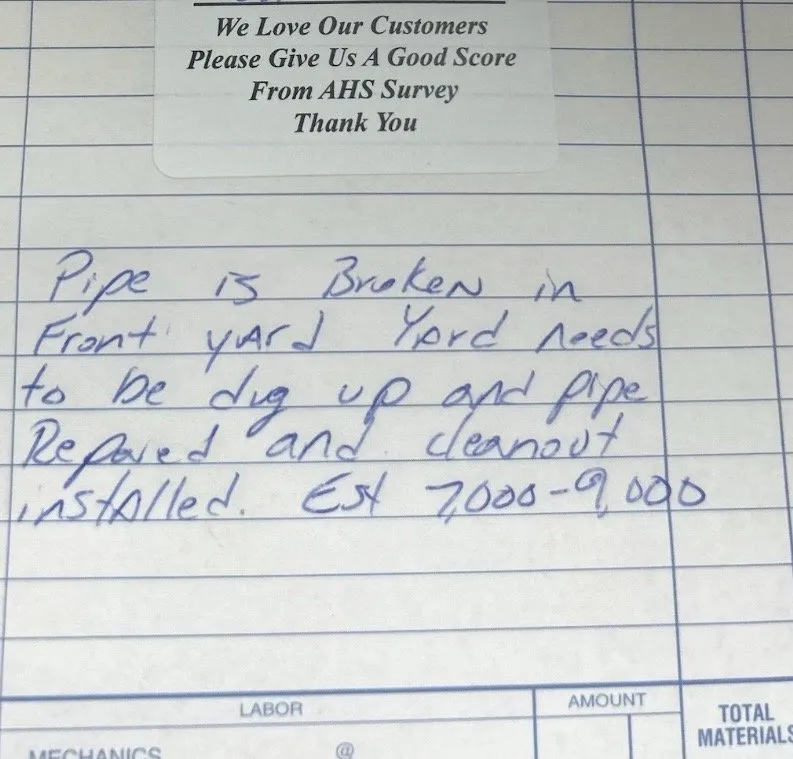 We Love Our Customers
Please Give Us A Good Score
From AHS Survey
Thank You
Pipe is Broken in
Front yard Yard needs
to be dug up and pipe
Repared and cleanout
installed. Est 7,000-9,000
LABOR
AMOUNT
TOTAL
MATERIALS
MECHANICS
@